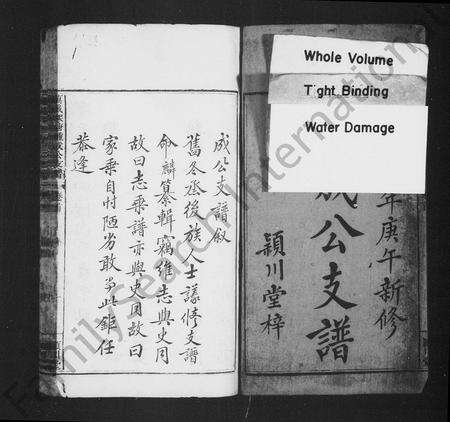 Whole Volume
Tight Binding
Water Damage
年庚午新修
成公支譜
穎川堂梓
1
成公支譜敘
舊冬烝後族人士議修支譜
命麟纂輯竊維志與史同
故曰志乘譜亦與史同故曰
家乘自忖陋劣敢當此鉅任
恭逢
FamilySearch International